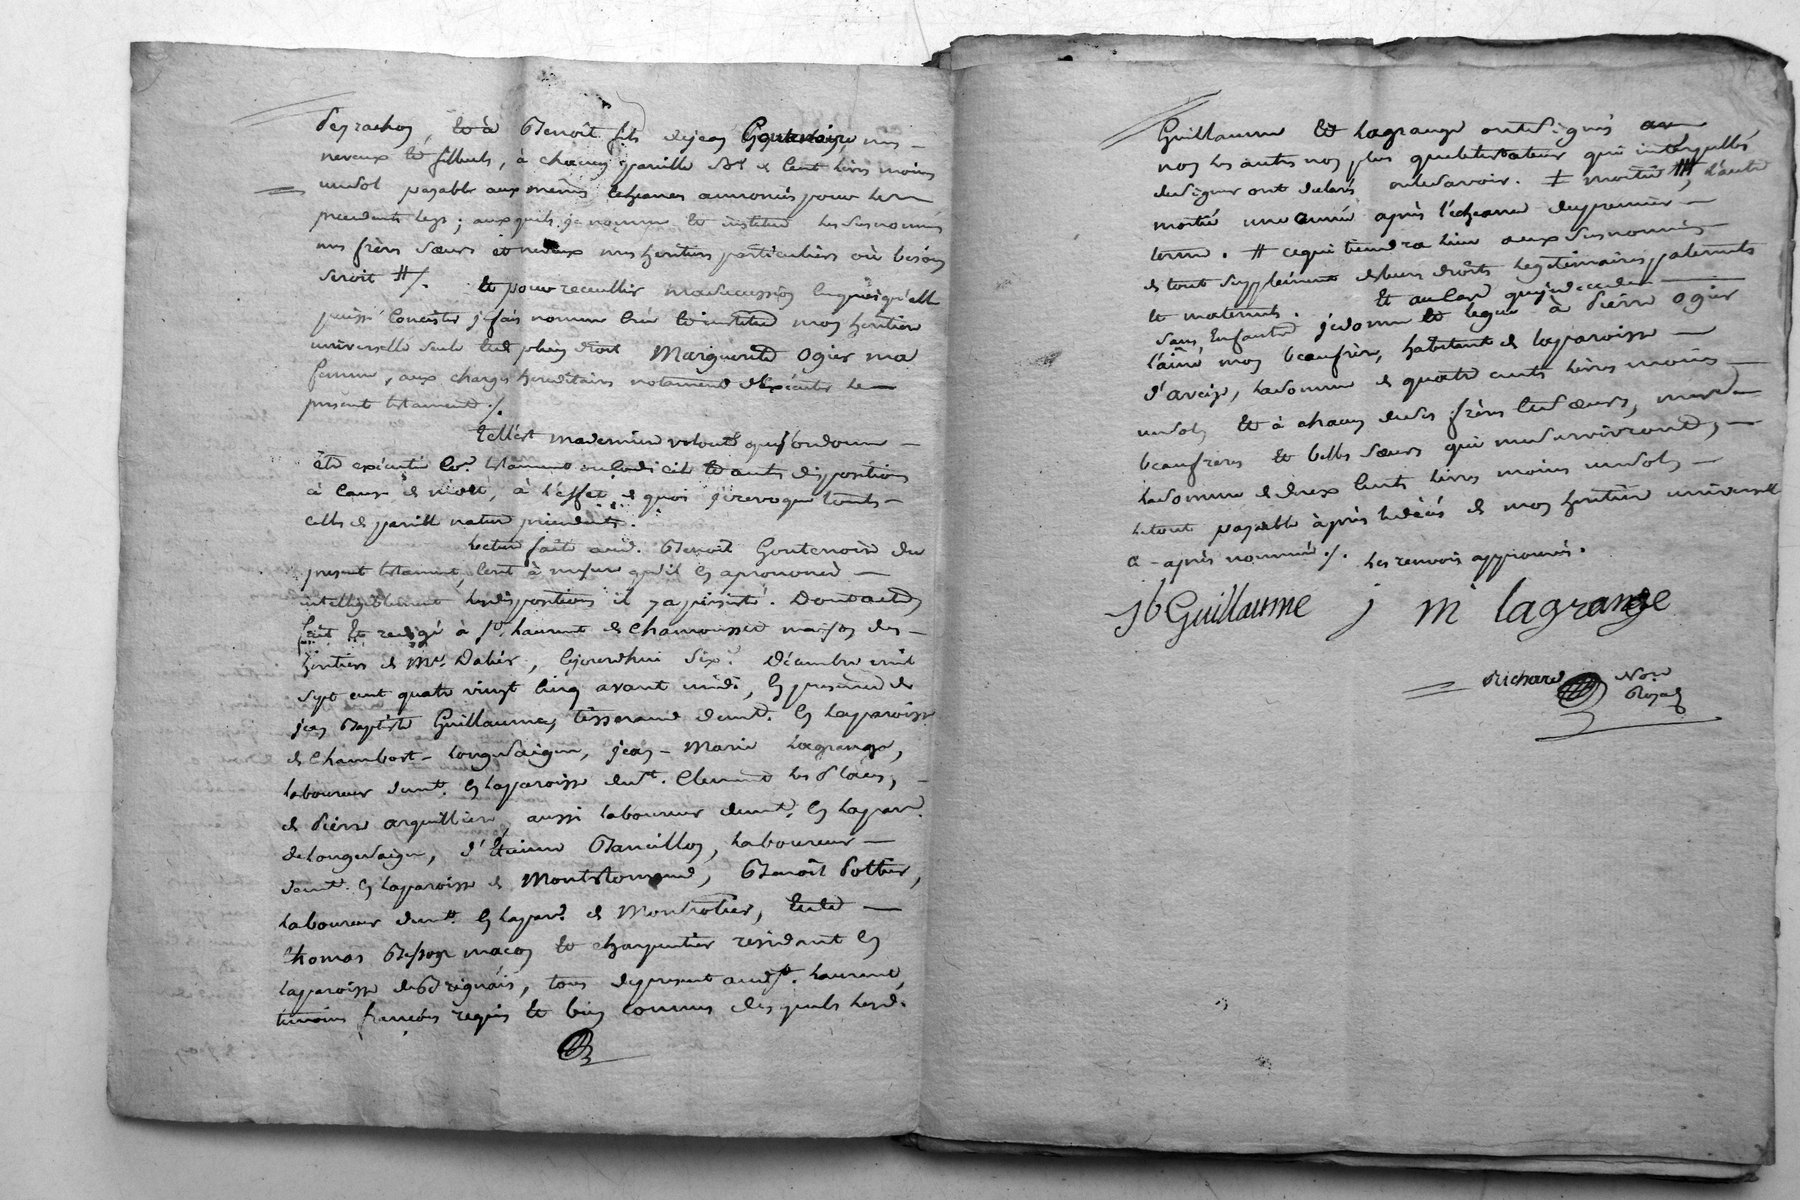 Peyrachon, et à Benoît fils de jean Goutenoire, mes
neveux et filleuls, à chacun pareille de cent livres moins
un sol payable aux mêmes echeances annoncés pour les
precedents legs ; auxquels je nomme et institue les susnommés
mes frères sœurs et neveux mes heritiers particuliers où besoin
seroit #/. Et pour recueillir ma succession en quoi qu'elle
puisse consister je fais nomme crée et institue mon heritiere
universelle seule et de plein droit Marguerite Ogier ma
femme, aux charges hereditaires notament d'exécuter le
present testament ./.
Telle est ma derniere volonté que j'ordonne
être exécutée testament ou codicile et autres dispositions
à cause de mort, à l'effet de quoi je revoque toutes
celles de pareille nature precedentes.
Lecture faite aud. Benoît Goutenoire du
present testament, écrit à mesure qu'il en a prononcé
intelligiblement les dispositions il y a persisté. Dont acte
fait et redigé à St. Laurent de Chamousset maison des
heritiers de Mr. Dalier, ce jourd'hui six Décembre mil
sept cent quatre vingt cinq avant midi, en presence de
jean Baptiste Guillaume, tisserand demt. en la paroisse
de Chambost-Longesaigne, jean-Marie Lagrange,
laboureur demt. en la paroisse de St. Clement les Places,
de Pierre arquilliere, aussi laboureur demt. en la par.
de Longesaigne, d'Etienne Bancillon, laboureur
demt. en la paroisse de Montrottier, Benoît Pottier,
laboureur demt. en la par. de Montrottier, et de
thomas Besson maçon et charpentier residant en
la paroisse de Brignais, tous de present aud. St. Laurent,
temoins françois requis et bien connus desquels lesd.
Guillaume et Lagrange ont signés
non les autres non plus que le testateur qui interpellés
de signer ont declaré ne le savoir. ‡ moitié #, l'autre
moitié une année après l'échéance du premier
terme. # ce qui tiendra lieu aux susnommés
de tout supplément de leurs droits legitimaires paternels
et maternels. Et au cas que je decede
sans Enfants je donne et legue à Pierre Ogier
l'aîné mon beaufrère, habitant de la paroisse
d'aveize, la somme de quatre cents livres moins
un sol, et à chacun de ses frères et sœurs, mes
beaufreres et belles sœurs qui me survivront,
la somme de deux cents livres moins un sol,
le tout payable après le décés de mon heritiere universelle
ci-après nommée ./. Les renvois approuvés.
jb Guillaume j m lagrange
Richard Nore
Royal